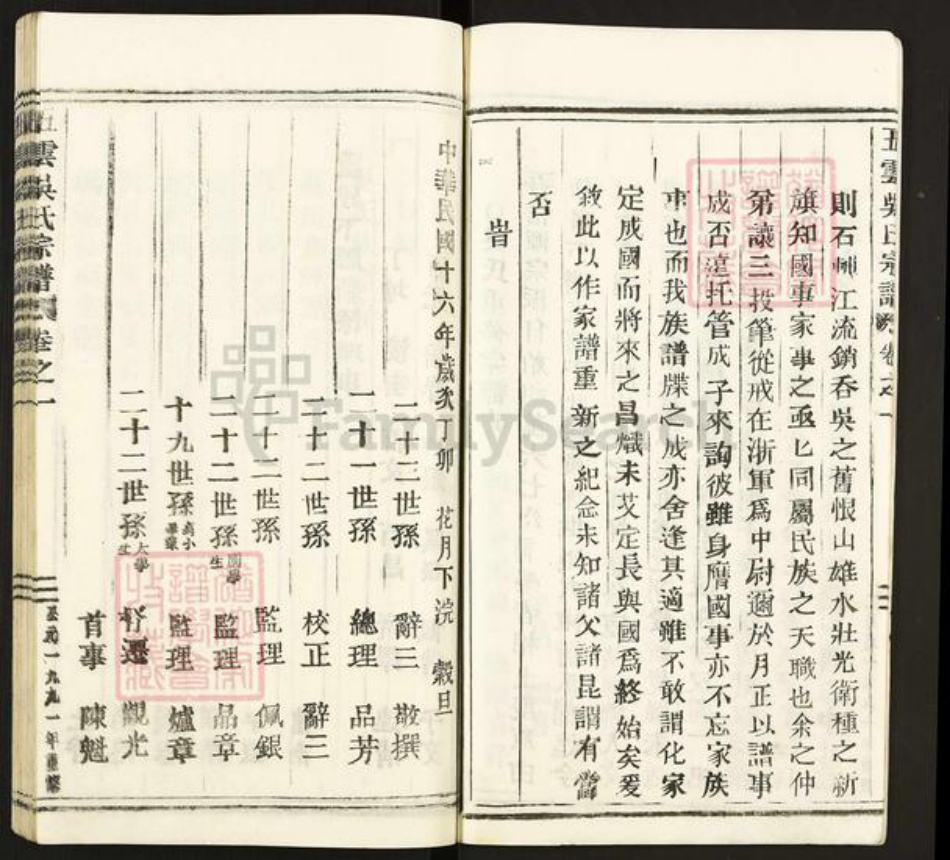 五雲吳氏宗譜 卷之一
則石興江流銷吞吳之舊恨山雄水壯光衛種之新
旗知國事家事之亟亟同屬民族之天職也余之仲
第讓三投筆從戎在浙軍爲中尉邇於月正以譜事
成否遠托管成子來詢彼雖身膺國事亦不忘家族
事也而我族譜牒之成亦舍逢其適雖不敢謂化家
定成國而將來之昌熾未艾定長與國爲終始矣爰
敘此以作家譜重新之紀念未知諸父諸昆謂有當
否
旹
中華民國十六年歲次丁卯花月下浣 穀旦
二十二世孫 辭三 敬撰
二十一世孫 總理 品芳
二十二世孫 校正 辭三
二十二世孫 監理 佩銀
二十二世孫 國學生 監理 品章
十九世孫 高小畢業 監理 爐章
二十二世孫 大學生 觀光
首事 陳魁
五雲吳氏宗譜 卷之一
公元一九九一年重修
FamilySearch